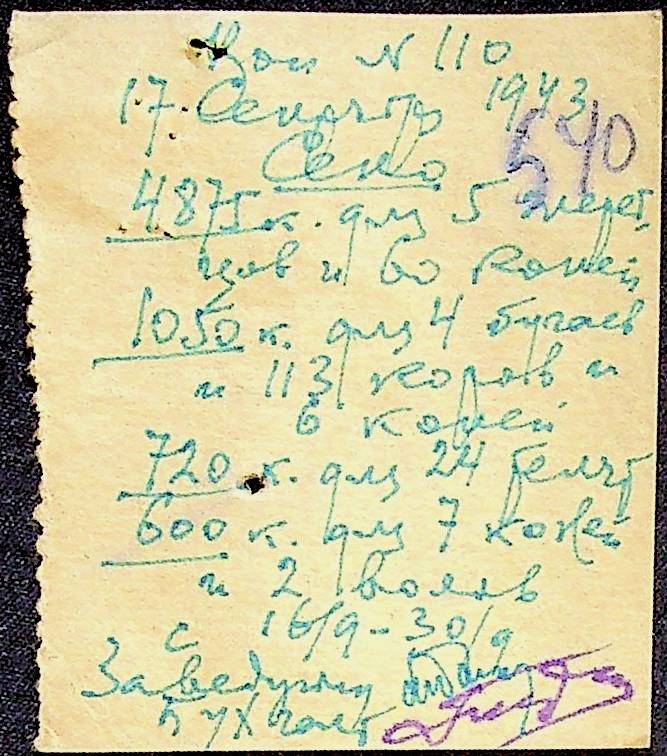 N 110
17 Сентября 1943
540
Сено
4875 к. для 5 жереб
цов и 60 коней
1050 к. для 4 бугаев
и 113 коров и
6 коней
720 к. для 24 телят
600 к. для 7 коней
и 2 волов
с 16/9 - 30/9
Заведующий